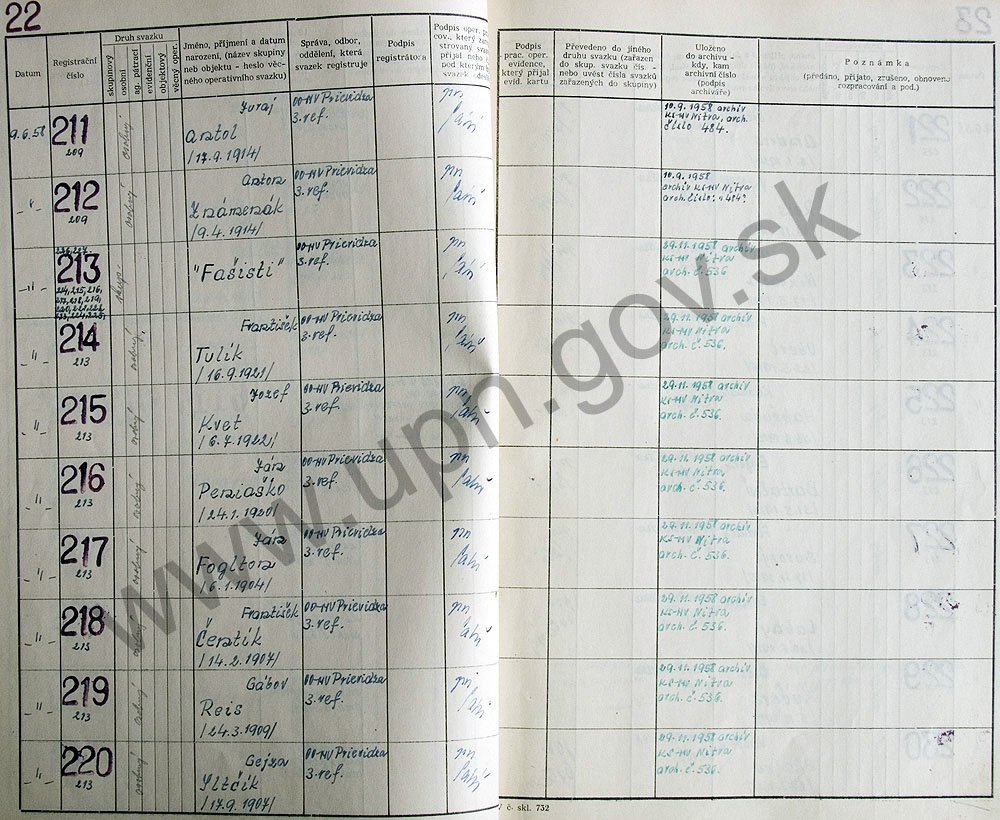 22
Datum
Registrační číslo
Druh svazku
skupinový
osobní
ag. pátrací
evidenční
objektový
věcný oper.
Jméno, příjmení a datum
narození, (název skupiny
neb objektu - heslo věc-
ného operativního svazku)
Správa, odbor,
oddělení, která
svazek registruje
Podpis
registrátora
Podpis oper. p
cov., který zare
strovaný svaz
přijal nebo
pod kterým
svazek
Podpis
prac. oper.
evidence,
který přijal
evid. kartu
Převedeno do jiného
druhu svazku (zařazen
do skup. svazku čís. -
nebo uvést čísla svazků
zařazených do skupiny)
Uloženo
do archivu -
kdy, kam
archivní číslo
(podpis
archiváře)
Poznámka
(předáno, přijato, zrušeno, obnoveno
rozpracování a pod.)
9.6.58
211
209
osobný
Juraj
Antol
/17.9.1914/
OO-MV Prievidza
3.ref.
10.9.1958 archív
KS-MV Nitra, arch.
číslo 484.
212
209
osobný
Anton
Známenák
/9.4.1914/
OO-MV Prievidza
3.ref.
10.9.1958
archív KS-MV Nitra
arch. číslo: 484.
213
skup.
"Fašisti"
OO-MV Prievidza
3.ref.
29.11.1958 archív
KS-MV Nitra
arch. č. 536
214
213
osobný
František
Tulík
/16.9.1921/
OO-MV Prievidza
3.ref.
29.11.1958 archív
KS-MV Nitra
arch. č. 536.
215
213
osobný
Jozef
Kvet
/6.7.1922/
OO-MV Prievidza
3.ref.
29.11.1958 archív
KS-MV Nitra
arch. č. 536.
216
213
osobný
Ján
Peniaško
/24.1.1920/
OO-MV Prievidza
3.ref.
29.11.1958 archív
KS-MV Nitra
arch. č. 536.
217
213
osobný
Ján
Foglton
/6.1.1904/
OO-MV Prievidza
3.ref.
29.11.1958 archív
KS-MV Nitra
arch. č. 536.
218
213
osobný
František
Čertík
/14.2.1907/
OO-MV Prievidza
3.ref.
29.11.1958 archív
KS-MV Nitra
arch. č. 536.
219
213
osobný
Gábor
Reis
/24.3.1909/
OO-MV Prievidza
3.ref.
29.11.1958 archív
KS-MV Nitra
arch. č. 536.
220
213
osobný
Gejza
/17.9.1907/
OO-MV Prievidza
3.ref.
29.11.1958 archív
KS-MV Nitra
arch. č. 536.
č. skl. 732
www.upn.gov.sk